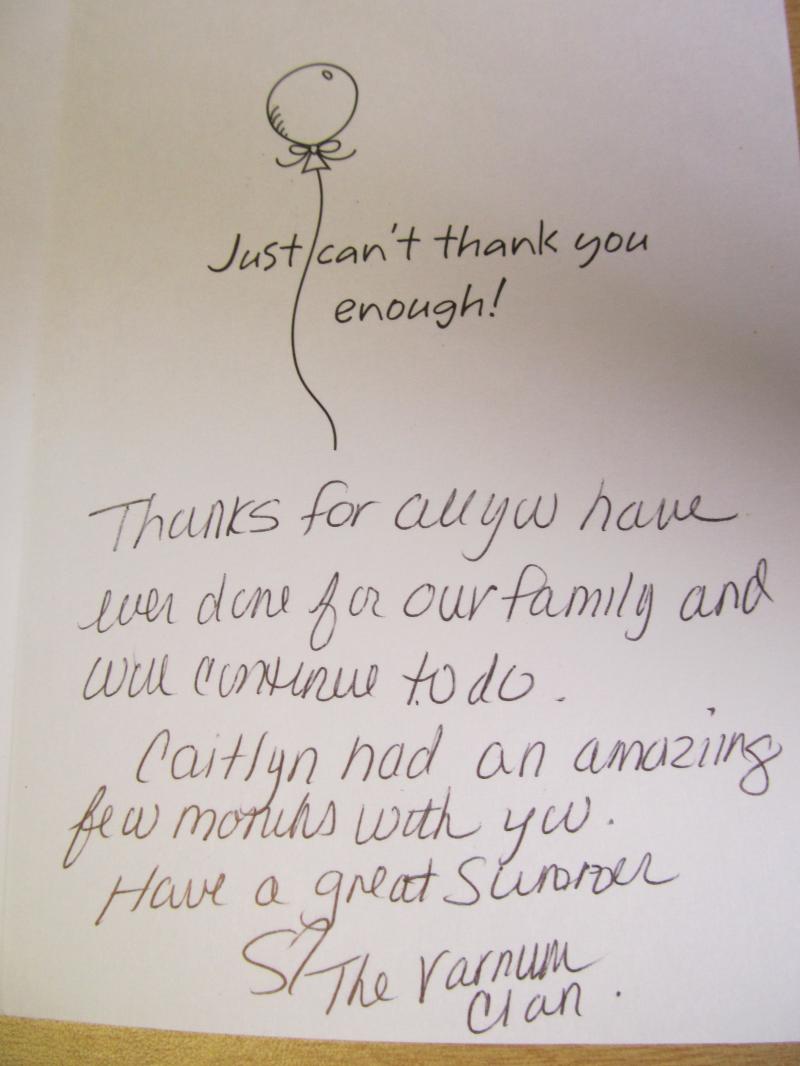 Just can't thank you
enough!
Thanks for all you have
ever done for our family and
will continue to do.
Caitlyn had an amaziing
few months with you.
Have a great Summer
The Varnum
Clan.